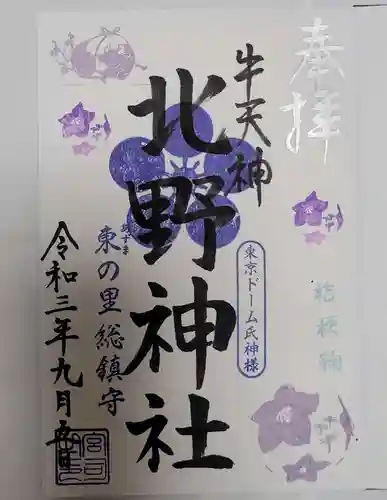 奉拝
牛天神
北野神社
東京ドーム氏神様
桔梗
あずま
東の里総鎮守
令和三年九月五日